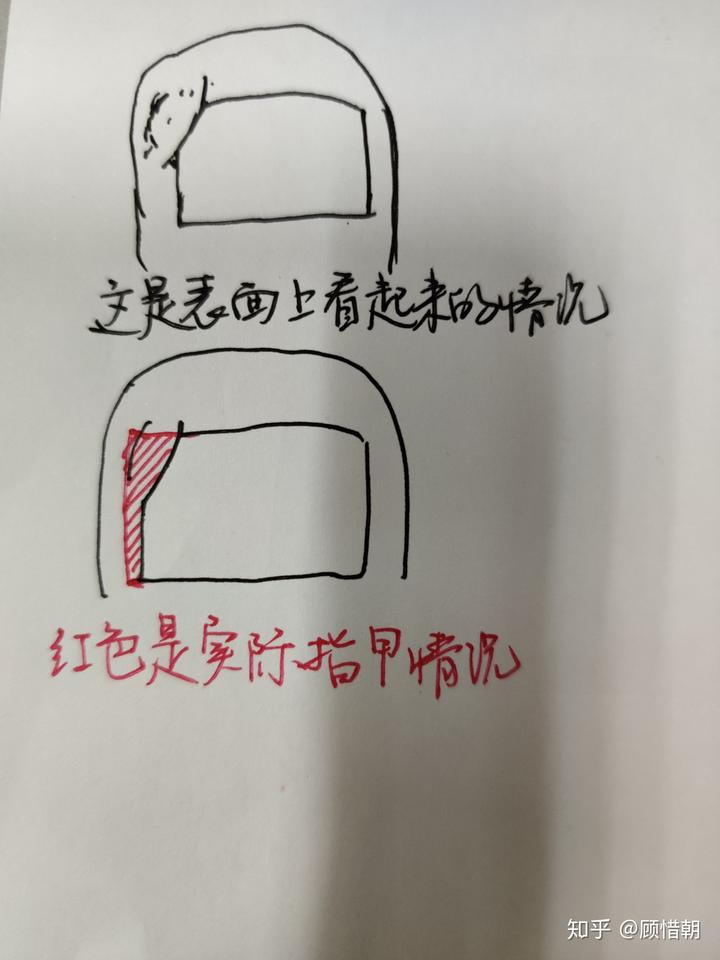 这是表面上看起来的情况
红色是实际指甲情况
知乎 @顾惜朝